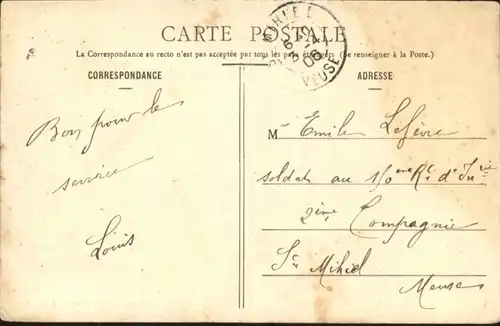 CARTE POSTALE
La Correspondance au recto n'est pas acceptée par tous les pays étrangers (Se renseigner à la Poste.)
CORRESPONDANCE
ADRESSE
MIHIEL
06
MEUSE
Bon pour le
service
Louis
M. Emile Lefèvre
soldat au 150ème Rt d'Infrie
2ème Compagnie
St Mihiel
Meuse